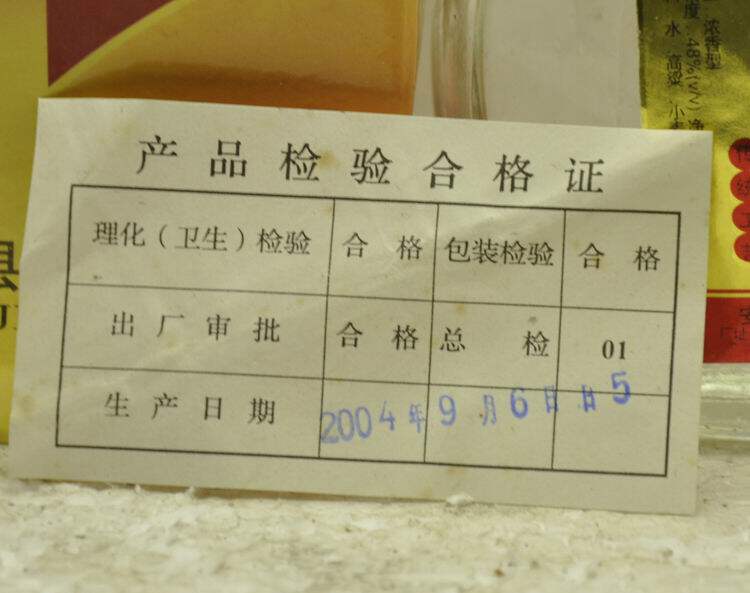 产品检验合格证
理化（卫生）检验 合格 包装检验 合格
出厂审批 合格 总检 01
生产日期 2004年9月6日 日5
浓香型
度 48%(v/v) 净
水 高粱 小